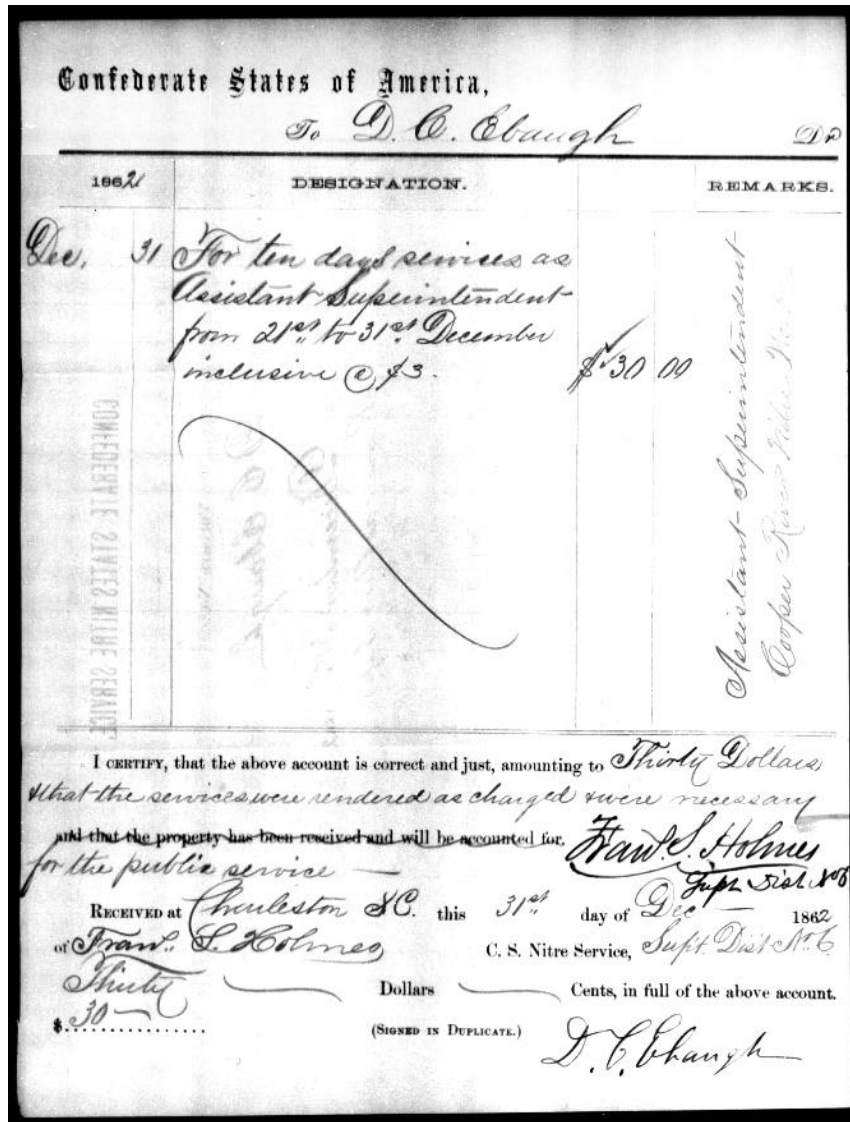 Confederate States of America,
To D. C. Ebaugh Dr
1862 DESIGNATION. REMARKS.
Dec. 31 For ten days services as
Assistant Superintendent
from 21st to 31st December
inclusive @ $3. $30 00
Assistant Superintendent
Cooper River Nitre
CONFEDERATE STATES NITRE SERVICE
I CERTIFY, that the above account is correct and just, amounting to Thirty Dollars
& that the services were rendered as charged & were necessary
and that the property has been received and will be accounted for.
for the public service
Fran. S. Holmes
Supt Dist No 6
RECEIVED at Charleston S C. this 31st day of Dec 1862
of Fran. S. Holmes C. S. Nitre Service, Supt. Dist No. 6
Thirty Dollars Cents, in full of the above account.
$ 30 (SIGNED IN DUPLICATE.)
D. C. Ebaugh